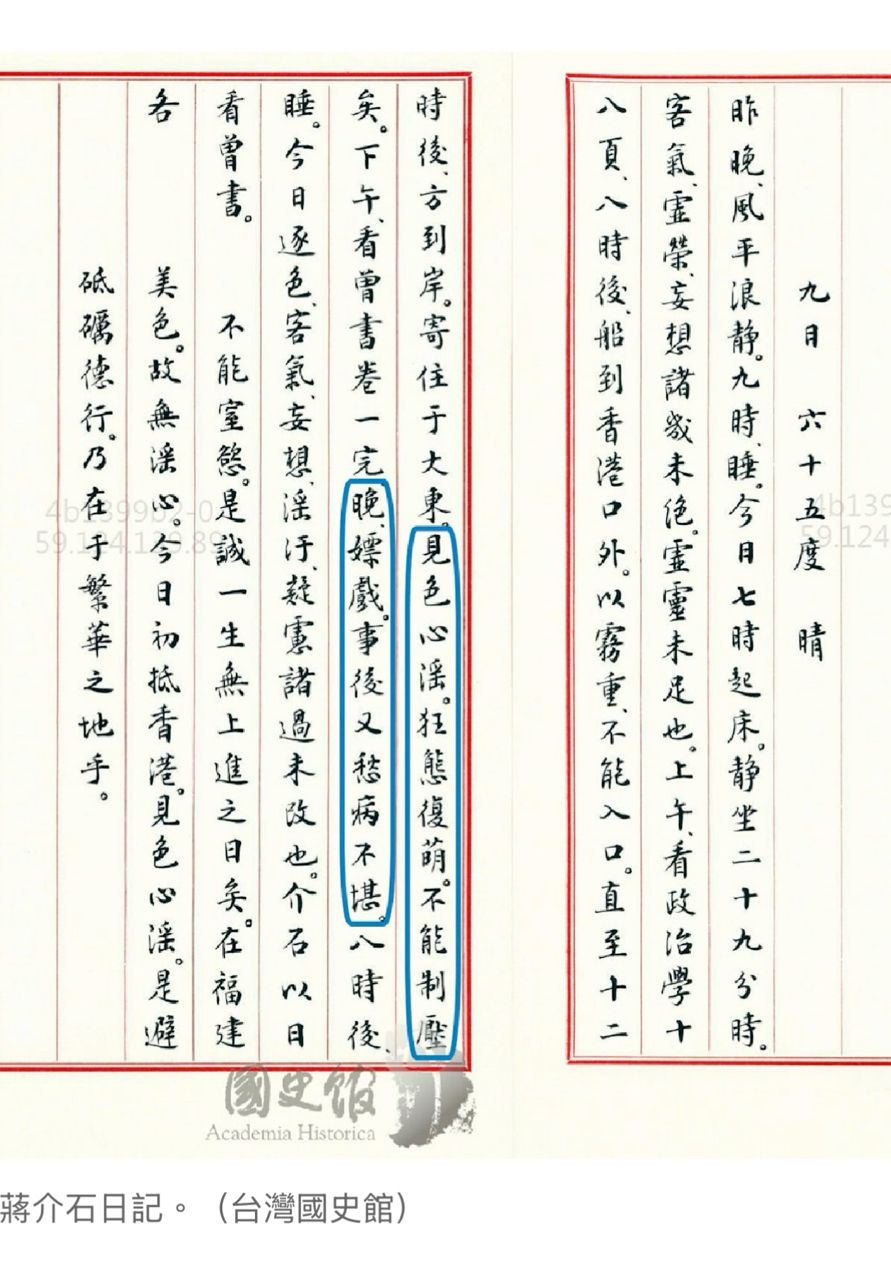 九日 六十五度 晴
昨晚、風平浪靜。九時、睡。今日七時起床。靜坐二十九分時。
客氣、虛榮、妄想諸幾未絕。虛靈未足也。上午、看政治學十
八頁、八時後、船到香港口外。以霧重、不能入口。直至十二
時後、方到岸。寄住于大東。見色心淫。狂態復萌。不能制壓
矣。下午、看曾書卷一完。晚、嫖戲。事後又愁病不堪。八時後、
睡。今日逐色、客氣、妄想、淫汙、疑慮諸過未改也。介石以日
看曾書。 不能窒慾。是誠一生無上進之日矣。在福建
各 美色。故無淫心。今日初抵香港。見色心淫。是避
砥礪德行。乃在于繁華之地乎。
4b1399b2-0
59.124.139.89
4b139
59.124
國史館
Academia Historica
蔣介石日記。（台灣國史館）